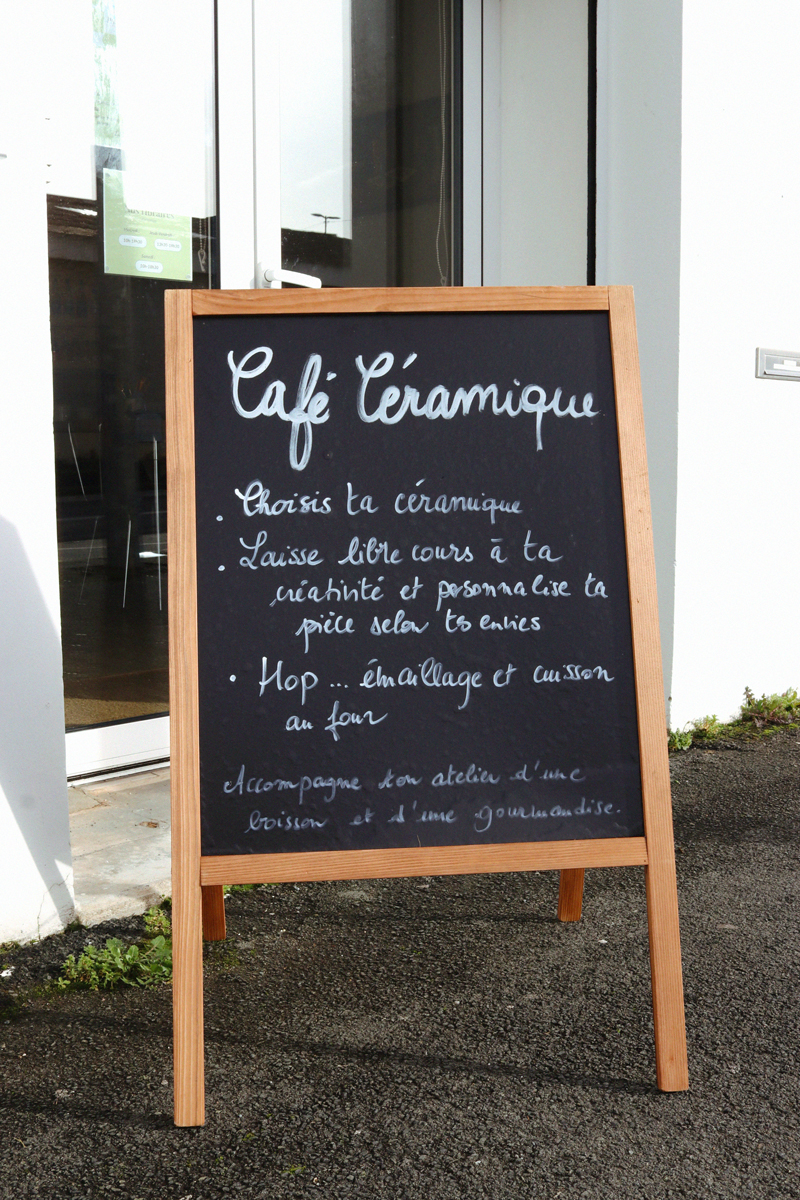 Café Céramique
. Choisis ta céramique
. Laisse libre cours à ta
créativité et personnalise ta
pièce selon tes envies
. Hop ... émaillage et cuisson
au four
Accompagne ton atelier d'une
boisson et d'une gourmandise.